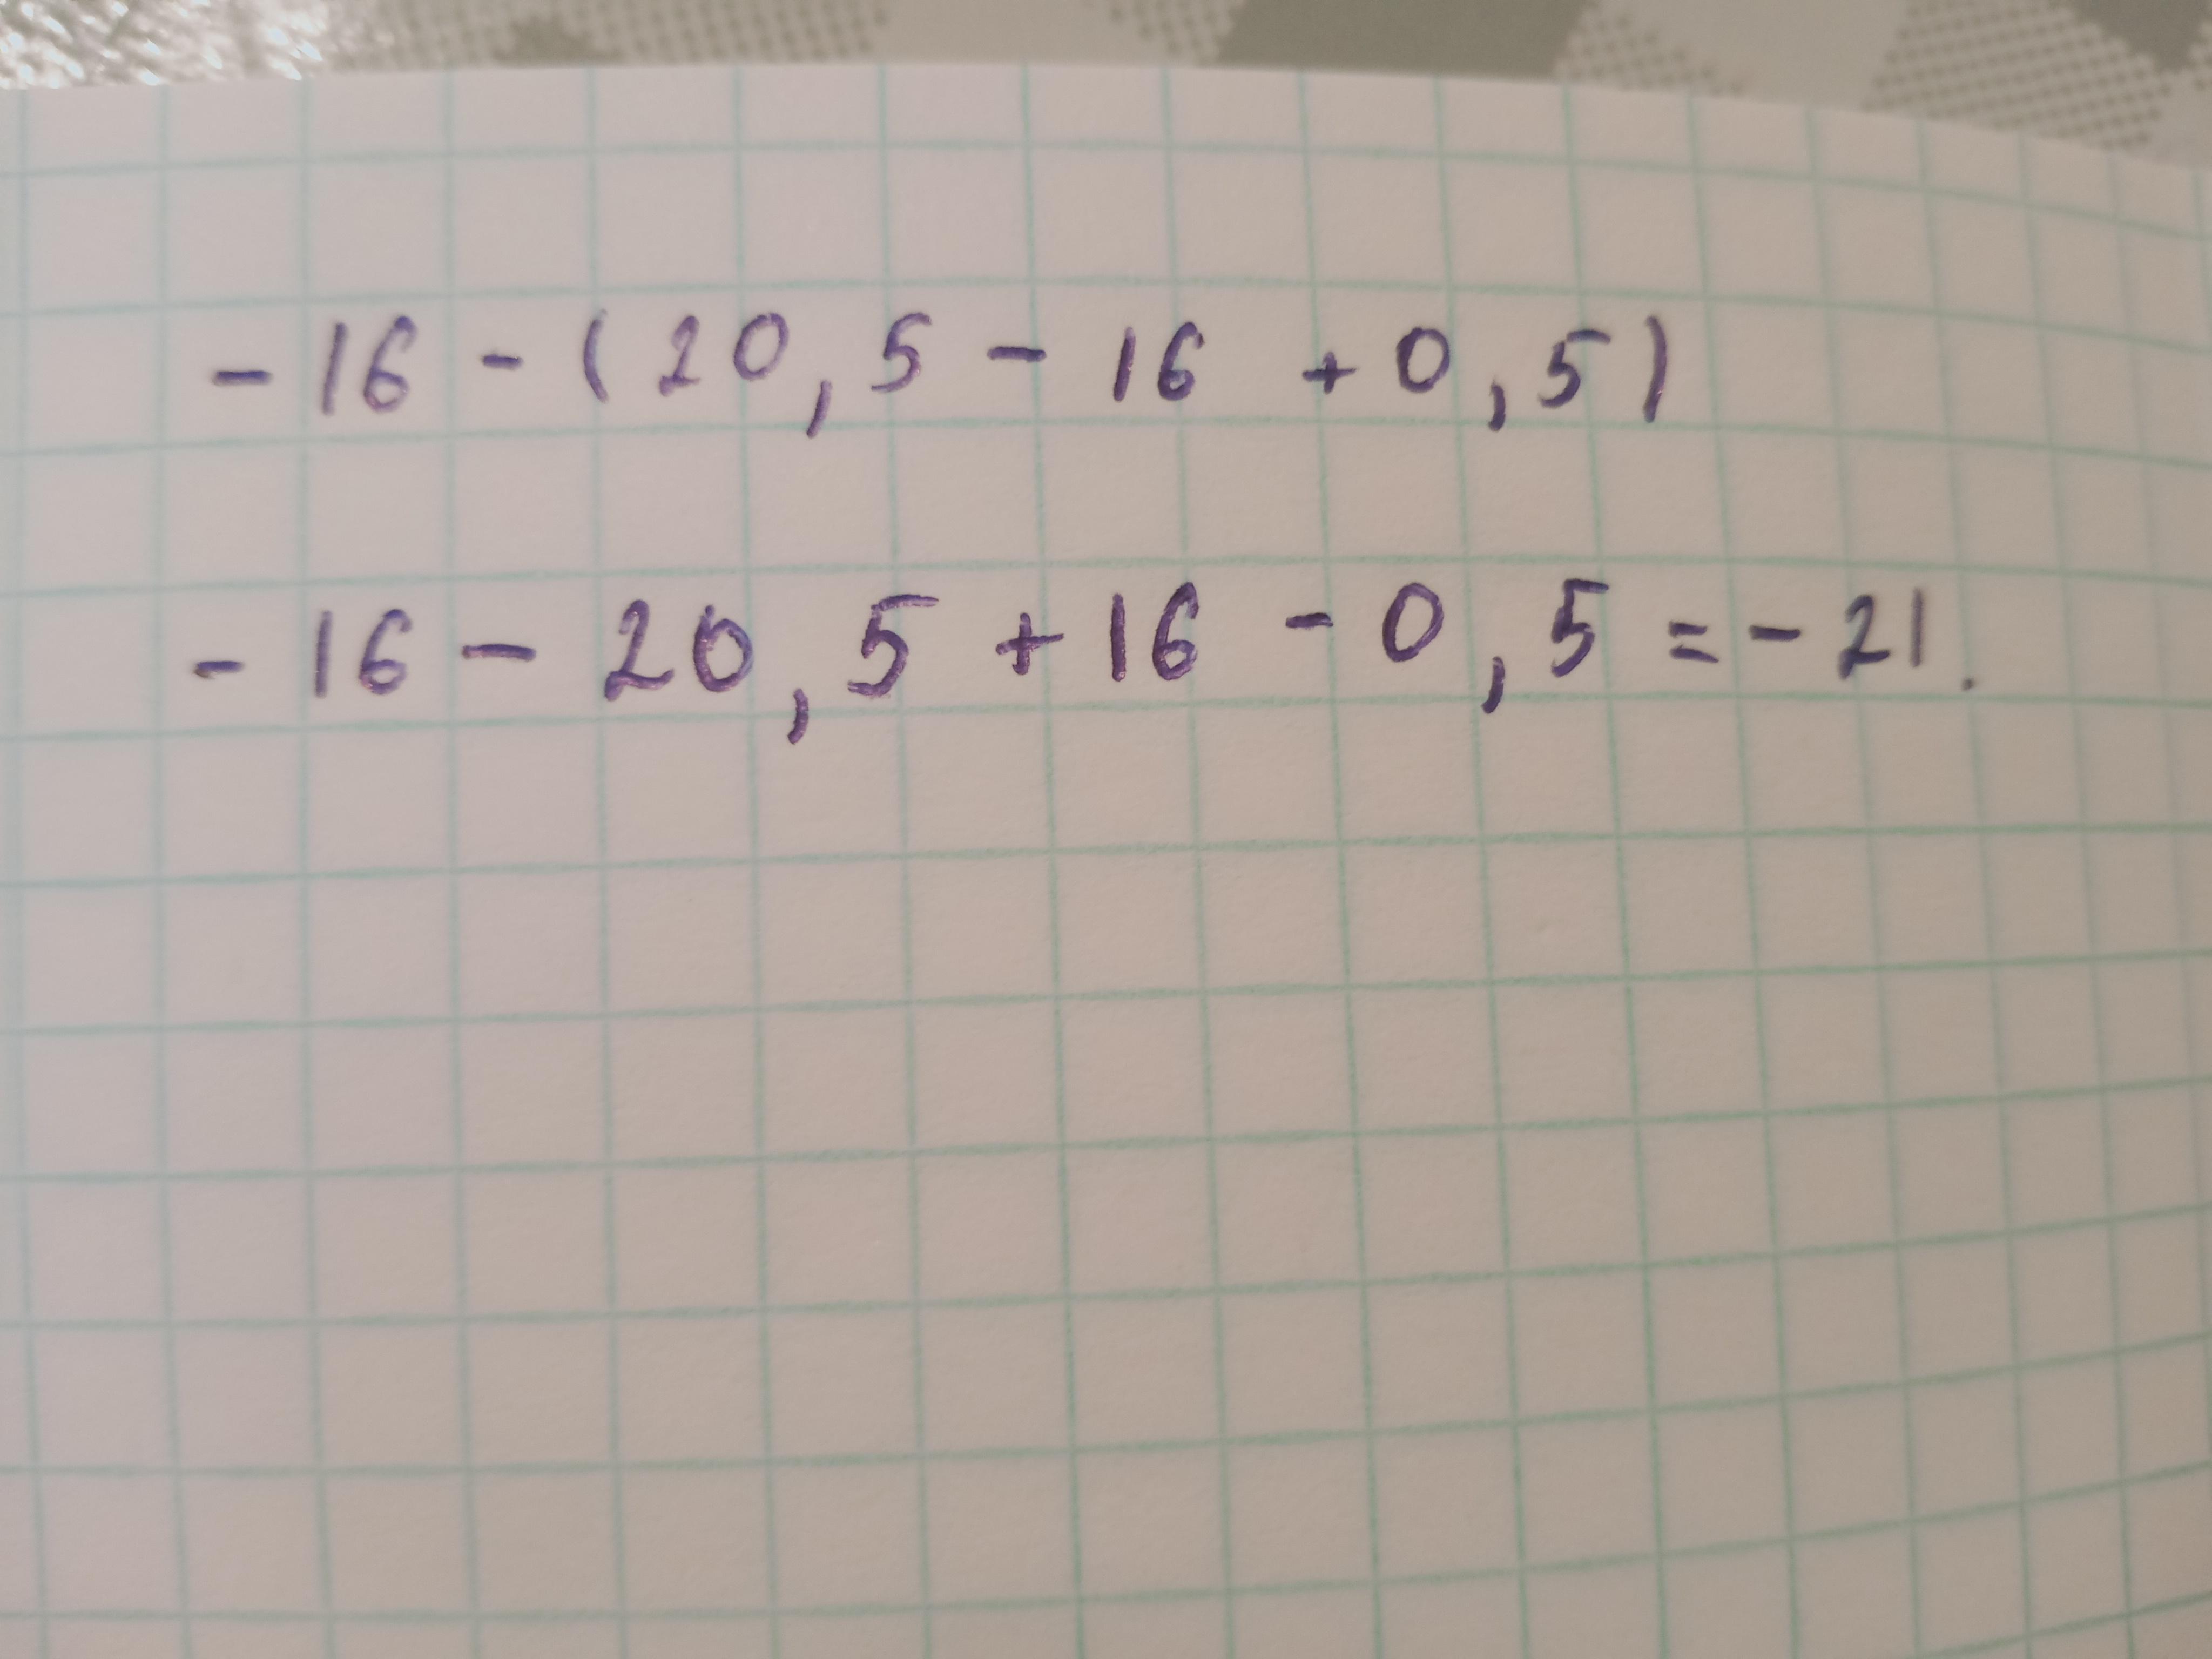 -16-(20,5-16+0,5)
-16-20,5+16-0,5=-21.